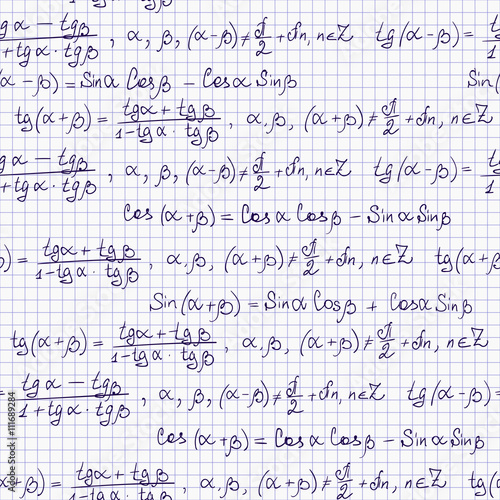 tgα + tgβ
tgα − tgβ / 1 + tgα · tgβ , α, β, (α−β) ≠ π/2 + πn, n∈Z tg(α−β) = t / 1
(α − β) = Sinα Cosβ − Cosα Sinβ Sin(
tg(α+β) = tgα + tgβ / 1 − tgα · tgβ , α, β, (α+β) ≠ π/2 + πn, n∈Z
tgα − tgβ / + tgα · tgβ , α, β, (α−β) ≠ π/2 + πn, n∈Z tg(α−β) = t / 1
Cos(α+β) = Cosα Cosβ − Sinα Sinβ
β) = tgα + tgβ / 1 − tgα · tgβ , α, β, (α+β) ≠ π/2 + πn, n∈Z tg(α+β
Sin(α+β) = Sinα Cosβ + Cosα Sinβ
tg(α+β) = tgα + tgβ / 1 − tgα · tgβ , α, β, (α+β) ≠ π/2 + πn, n∈Z
= tgα − tgβ / 1 + tgα · tgβ , α, β, (α−β) ≠ π/2 + πn, n∈Z tg(α−β) =
Cos(α+β) = Cosα Cosβ − Sinα Sinβ
α+β) = tgα + tgβ / 1 − tgα · tgβ , α, β, (α+β) ≠ π/2 + πn, n∈Z tg(
Adobe Stock | #111689284